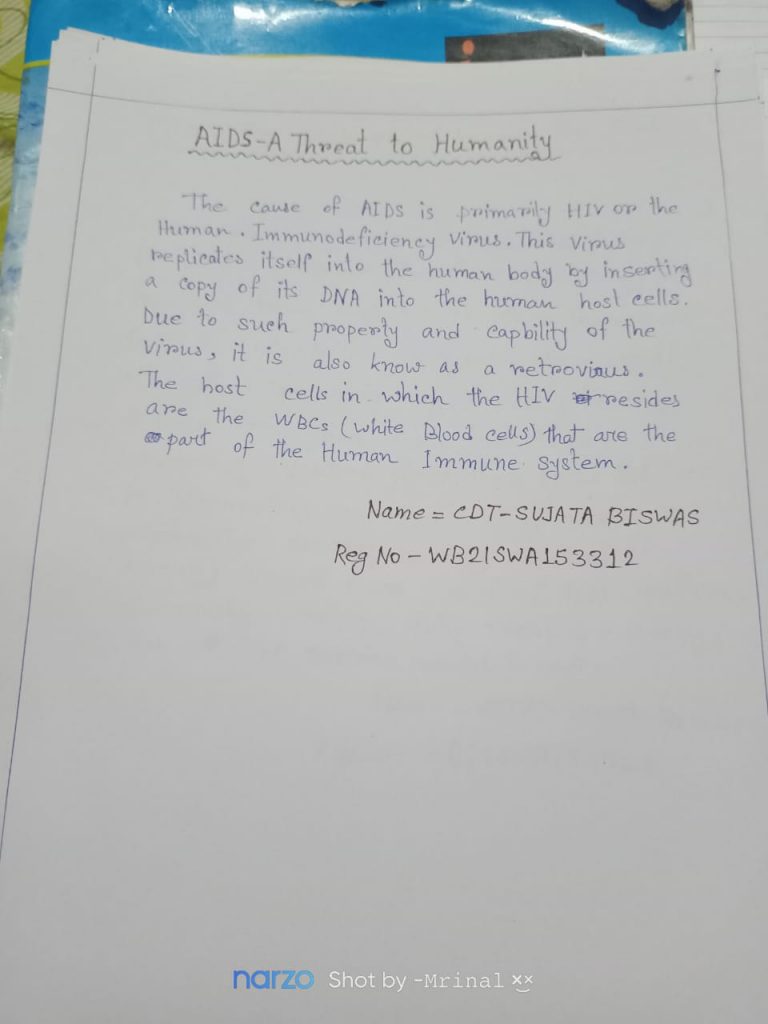 AIDS-A Threat to Humanity
The cause of AIDS is primarily HIV or the
Human. Immunodeficiency Virus. This Virus
replicates itself into the human body by inserting
a copy of its DNA into the human host cells.
Due to such property and capbility of the
Virus, it is also know as a retrovirus.
The host cells in which the HIV resides
are the WBCs (white Blood cells) that are the
part of the Human Immune system.
Name = CDT-SUJATA BISWAS
Reg No - WB21SWA153312
narzo Shot by -Mrinal